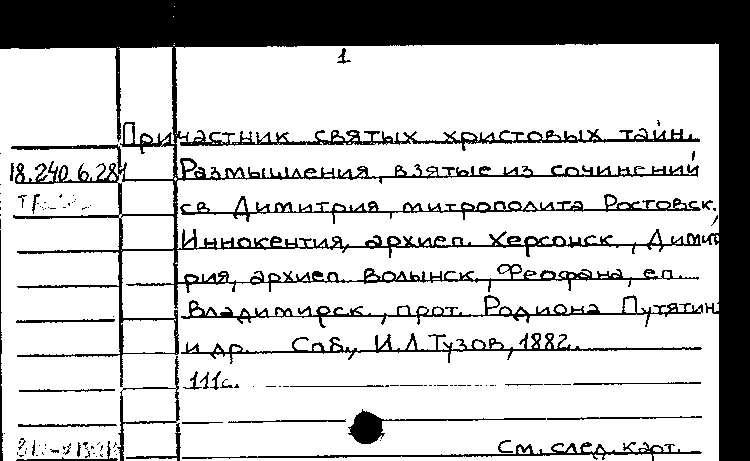 1
Причастник святых христовых тайн.
18.240.6.281 Размышления, взятые из сочинений
св. Димитрия, митрополита Ростовск.
Иннокентия, архиеп. Херсонск., Димит
рия, архиеп. Волынск., Феофана, еп.
Владимирск., прот. Родиона Путятин
и др. Спб., И.Л.Тузов, 1882.
111с.
См. след. карт.